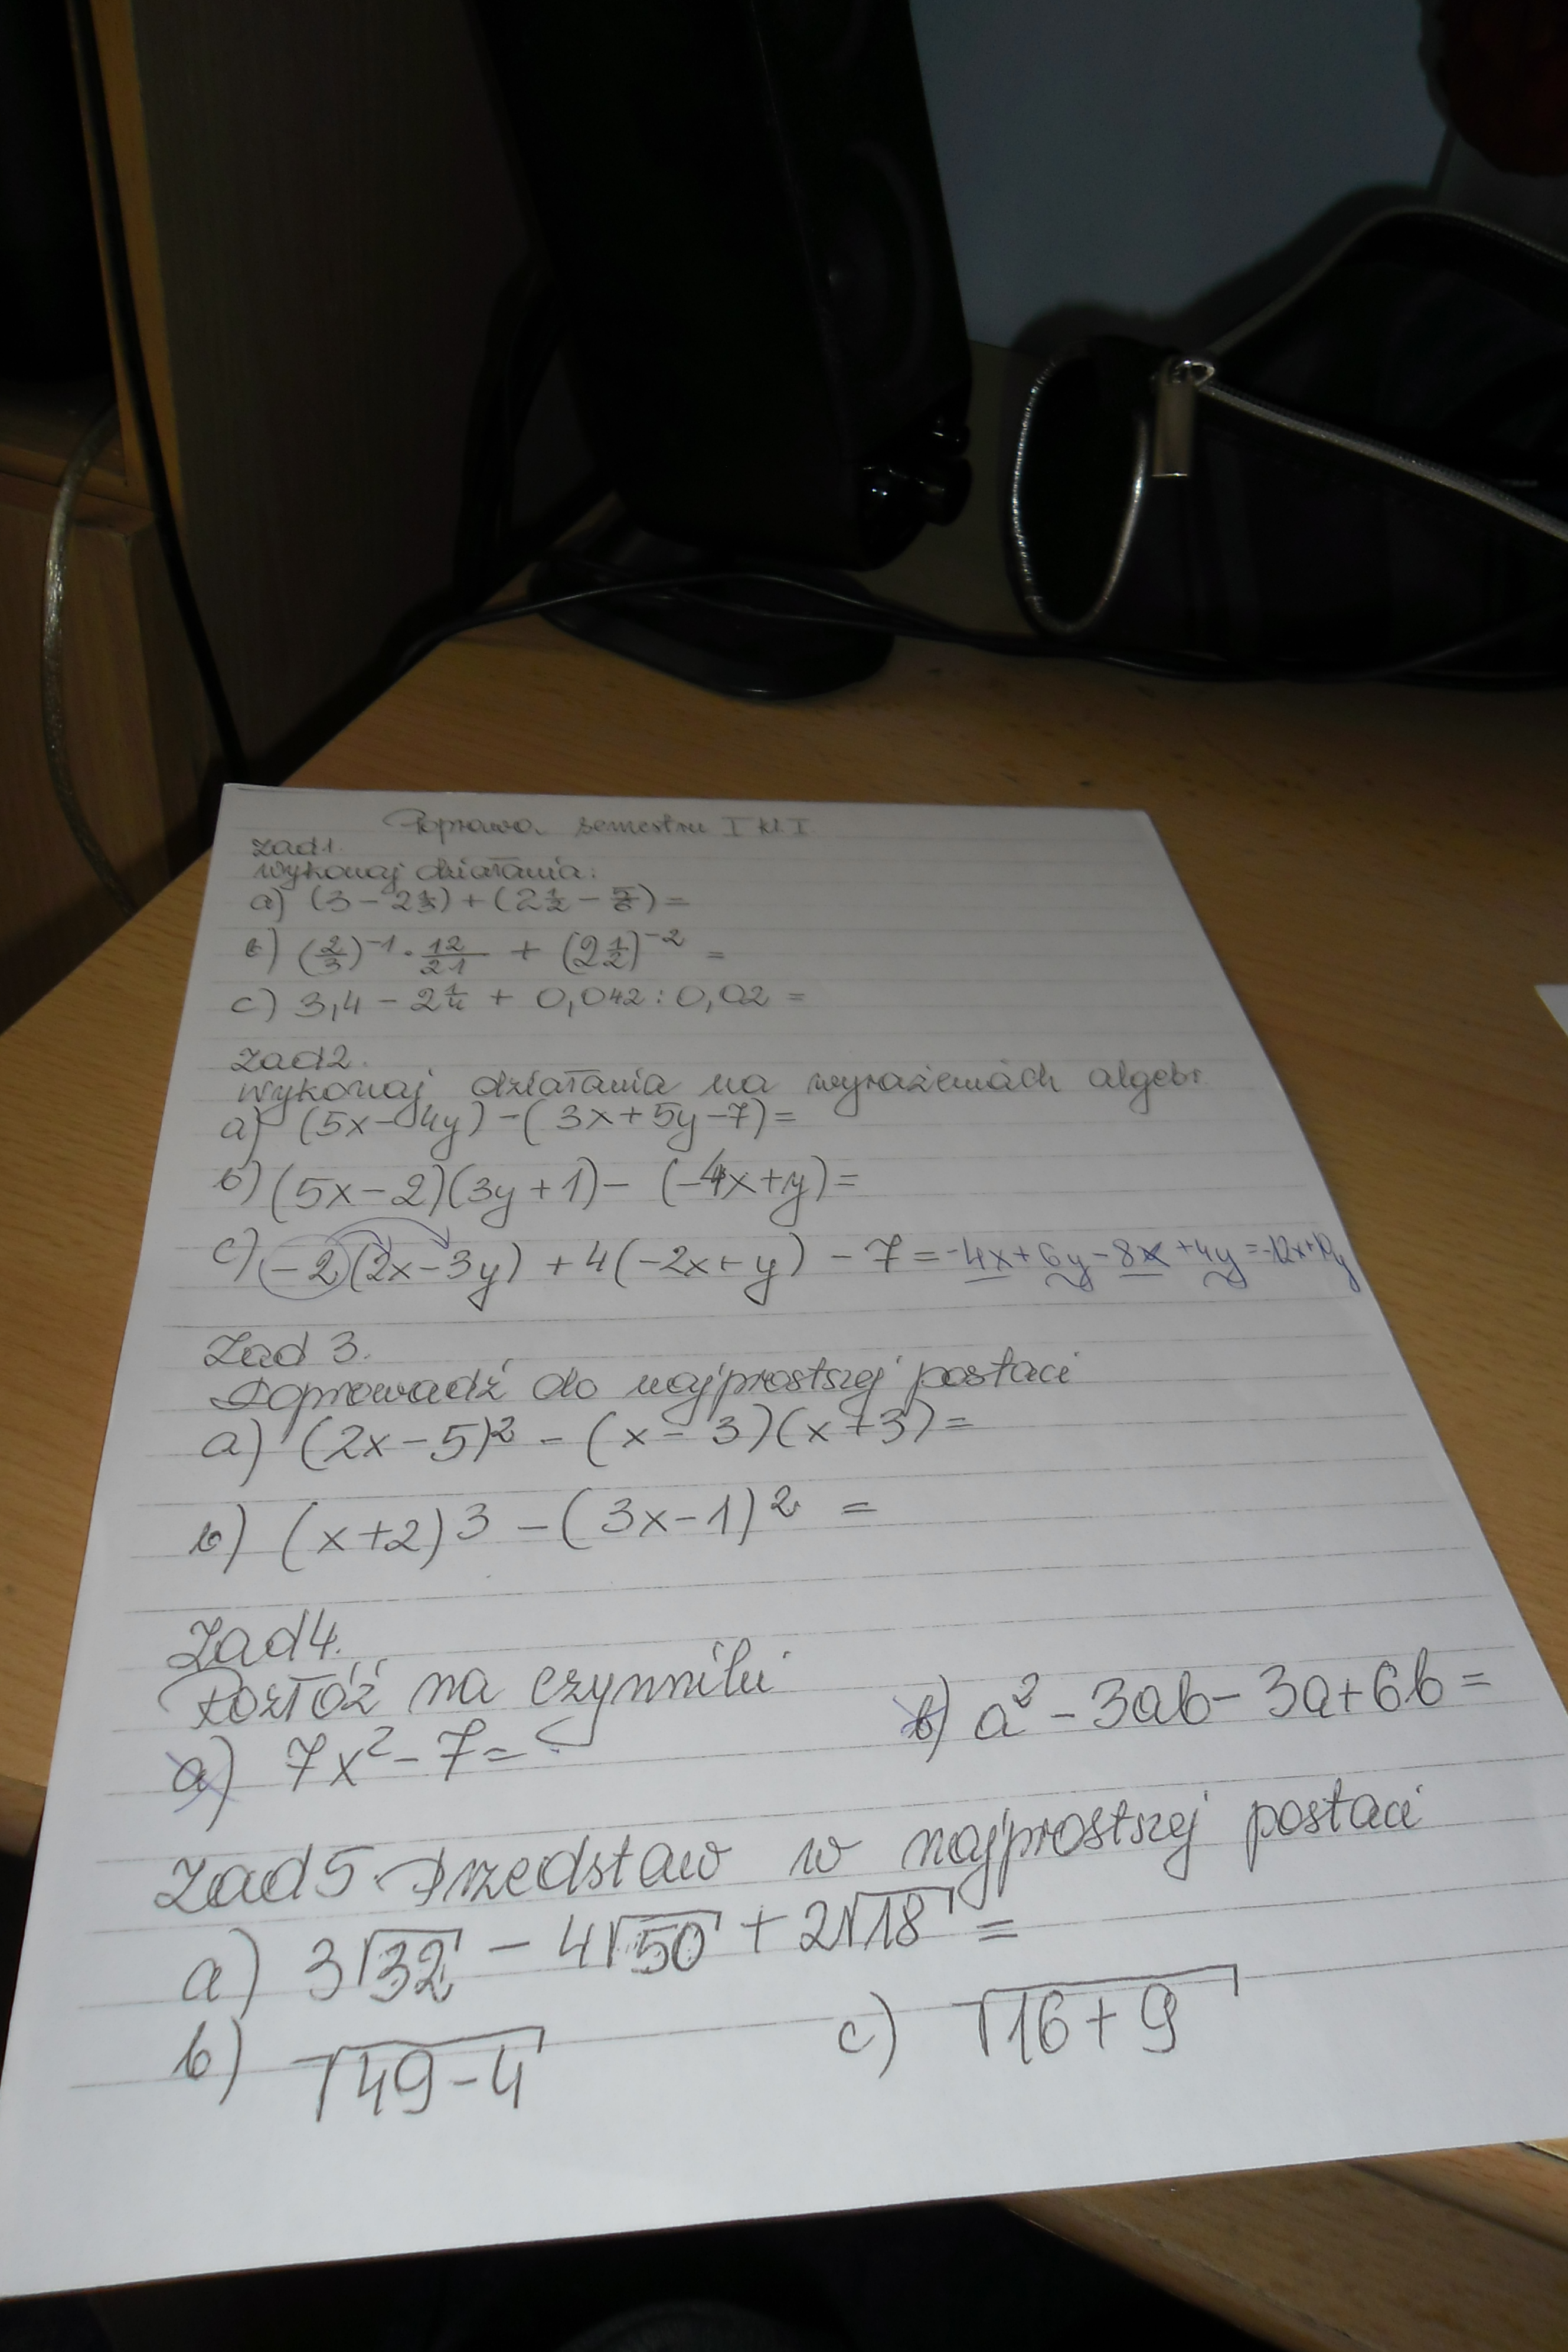 Poprawa semestru I kl. I
Zad1.
Wykonaj działania:
a) (3 - 2⅓) + (2½ - 5/6) =
b) (2/3)⁻¹ · 12/21 + (2½)⁻² =
c) 3,4 - 2¼ + 0,042 : 0,02 =
Zad2.
Wykonaj działania na wyrażeniach algebr
a) (5x - 4y) - (3x + 5y - 7) =
b) (5x - 2)(3y + 1) - (-4x + y) =
c) -2(2x - 3y) + 4(-2x + y) - 7 = -4x + 6y - 8x + 4y = -12x + 10y
Zad 3.
Doprowadź do najprostszej postaci
a) (2x - 5)² - (x - 3)(x + 3) =
b) (x + 2)³ - (3x - 1)² =
Zad4.
Rozłóż na czynniki
a) 7x² - 7 = b) a² - 3ab - 3a + 6b =
Zad5. Przedstaw w najprostszej postaci
a) 3√32 - 4√50 + 2√18 =
b) √49 - 4 c) √16 + 9